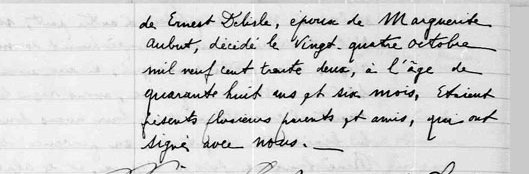 de Ernest Delisle, époux de Marguerite
Aubut, décédé le vingt-quatre octobre
mil neuf cent trente deux, à l'âge de
quarante huit ans et six mois, Etaient
présents plusieurs parents et amis, qui ont
signé avec nous. —